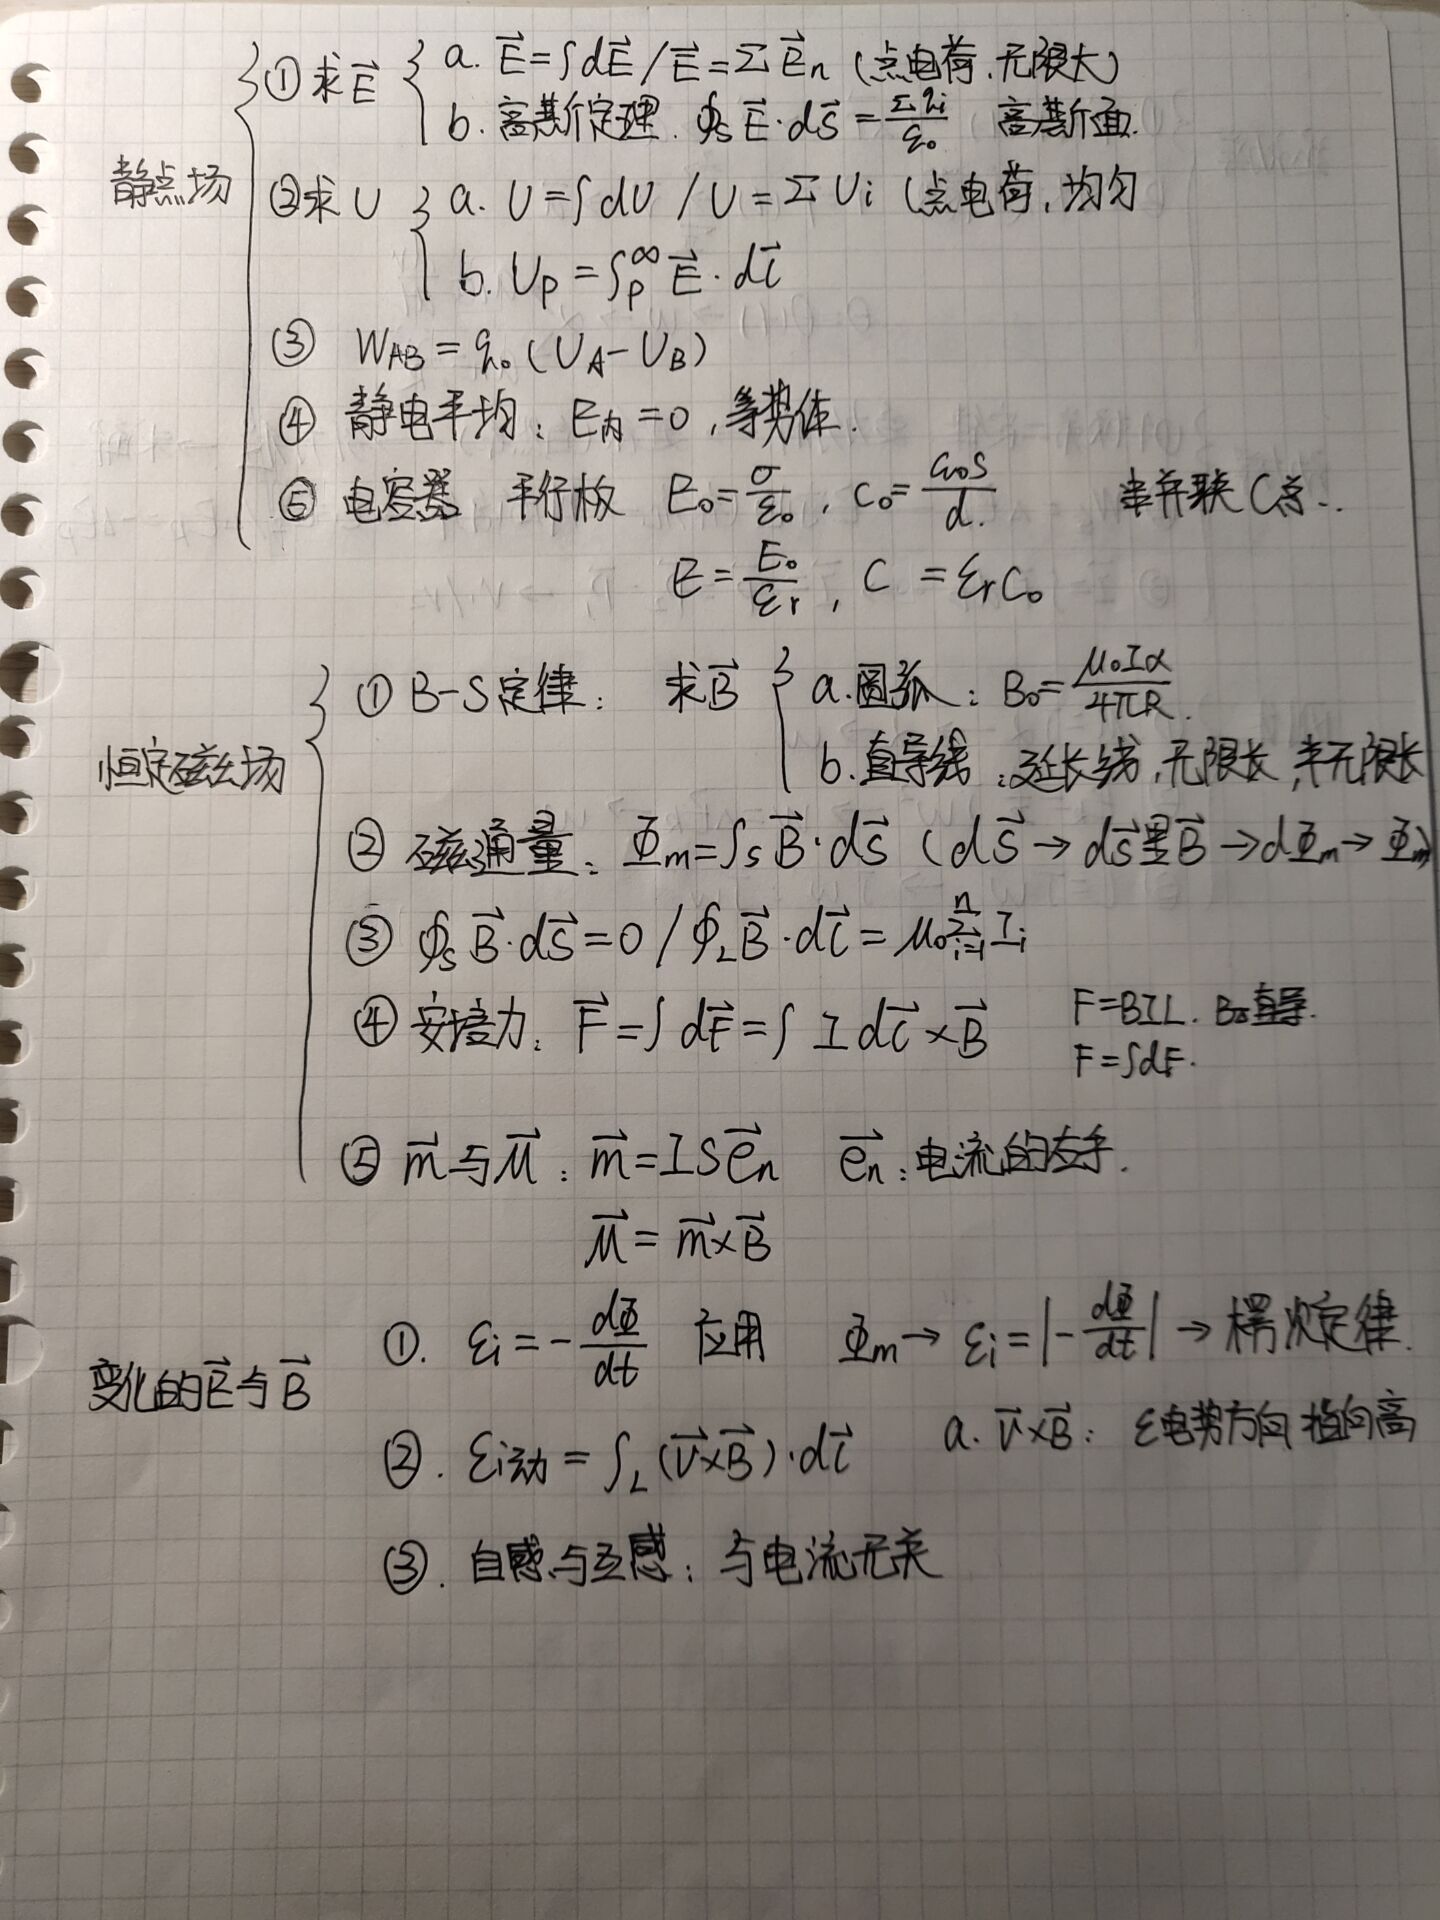 ① 求E⃗ { a. E⃗=∫dE⃗/E⃗=ΣE⃗n (点电荷、无限大)
b. 高斯定理. ∮s E⃗·dS⃗=Σqi/ε0 高斯面.
静点场
②求U { a. U=∫dU / U=ΣUi (点电荷,均匀
b. Up=∫p^∞ E⃗·dl⃗
③ WAB=q0(UA-UB)
④ 静电平均:E内=0,等势体.
⑤ 电容器 平行板 E0=σ/ε0, C0=ε0S/d. 串并联C总..
E=E0/εr, C=εrC0
① B-S定律: 求B⃗ { a.圆弧:B0=μ0Iα/4πR.
恒定磁场
b.直导线:延长线,无限长,半无限长
② 磁通量:Φm=∫s B⃗·dS⃗ (dS⃗→dS⃗里B⃗→dΦm→Φm)
③ ∮s B⃗·dS⃗=0/∮L B⃗·dl⃗=μ0 Σ(i=1→n) Ii
④ 安培力:F⃗=∫dF⃗=∫Idl⃗×B⃗ F=BIL. 直导.
F=∫dF.
⑤ m⃗与M⃗:m⃗=ISe⃗n e⃗n:电流的右手.
M⃗=m⃗×B⃗
①. εi=-dΦ/dt 应用 Φm→εi=|-dΦ/dt|→楞次定律.
变化的E⃗与B⃗
②. εi动=∫L(v⃗×B⃗)·dl⃗ a. v⃗×B⃗:ε电势方向指向高
③. 自感与互感:与电流无关